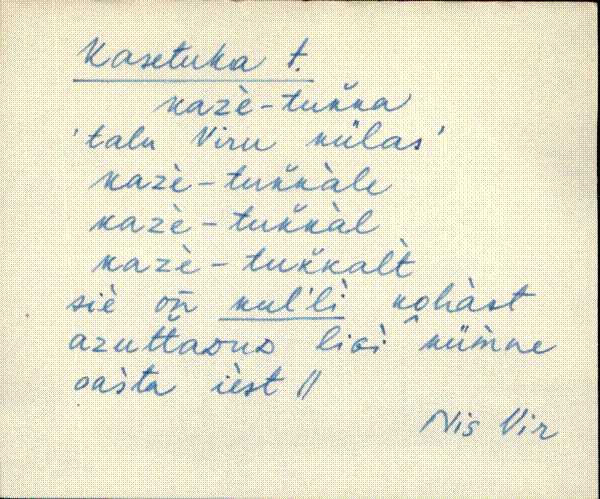 Kasetuka t.
kazè-tuk̆ka
'talu Viru külas'
kazè-tuk̆kàle
kazè-tuk̆kàl
kazè-tuk̆kalt̀
siè on̄ kul'lì kohàst
azuttaouo liɢì küm̀ne
oaśta ièst ||
Nis Vir